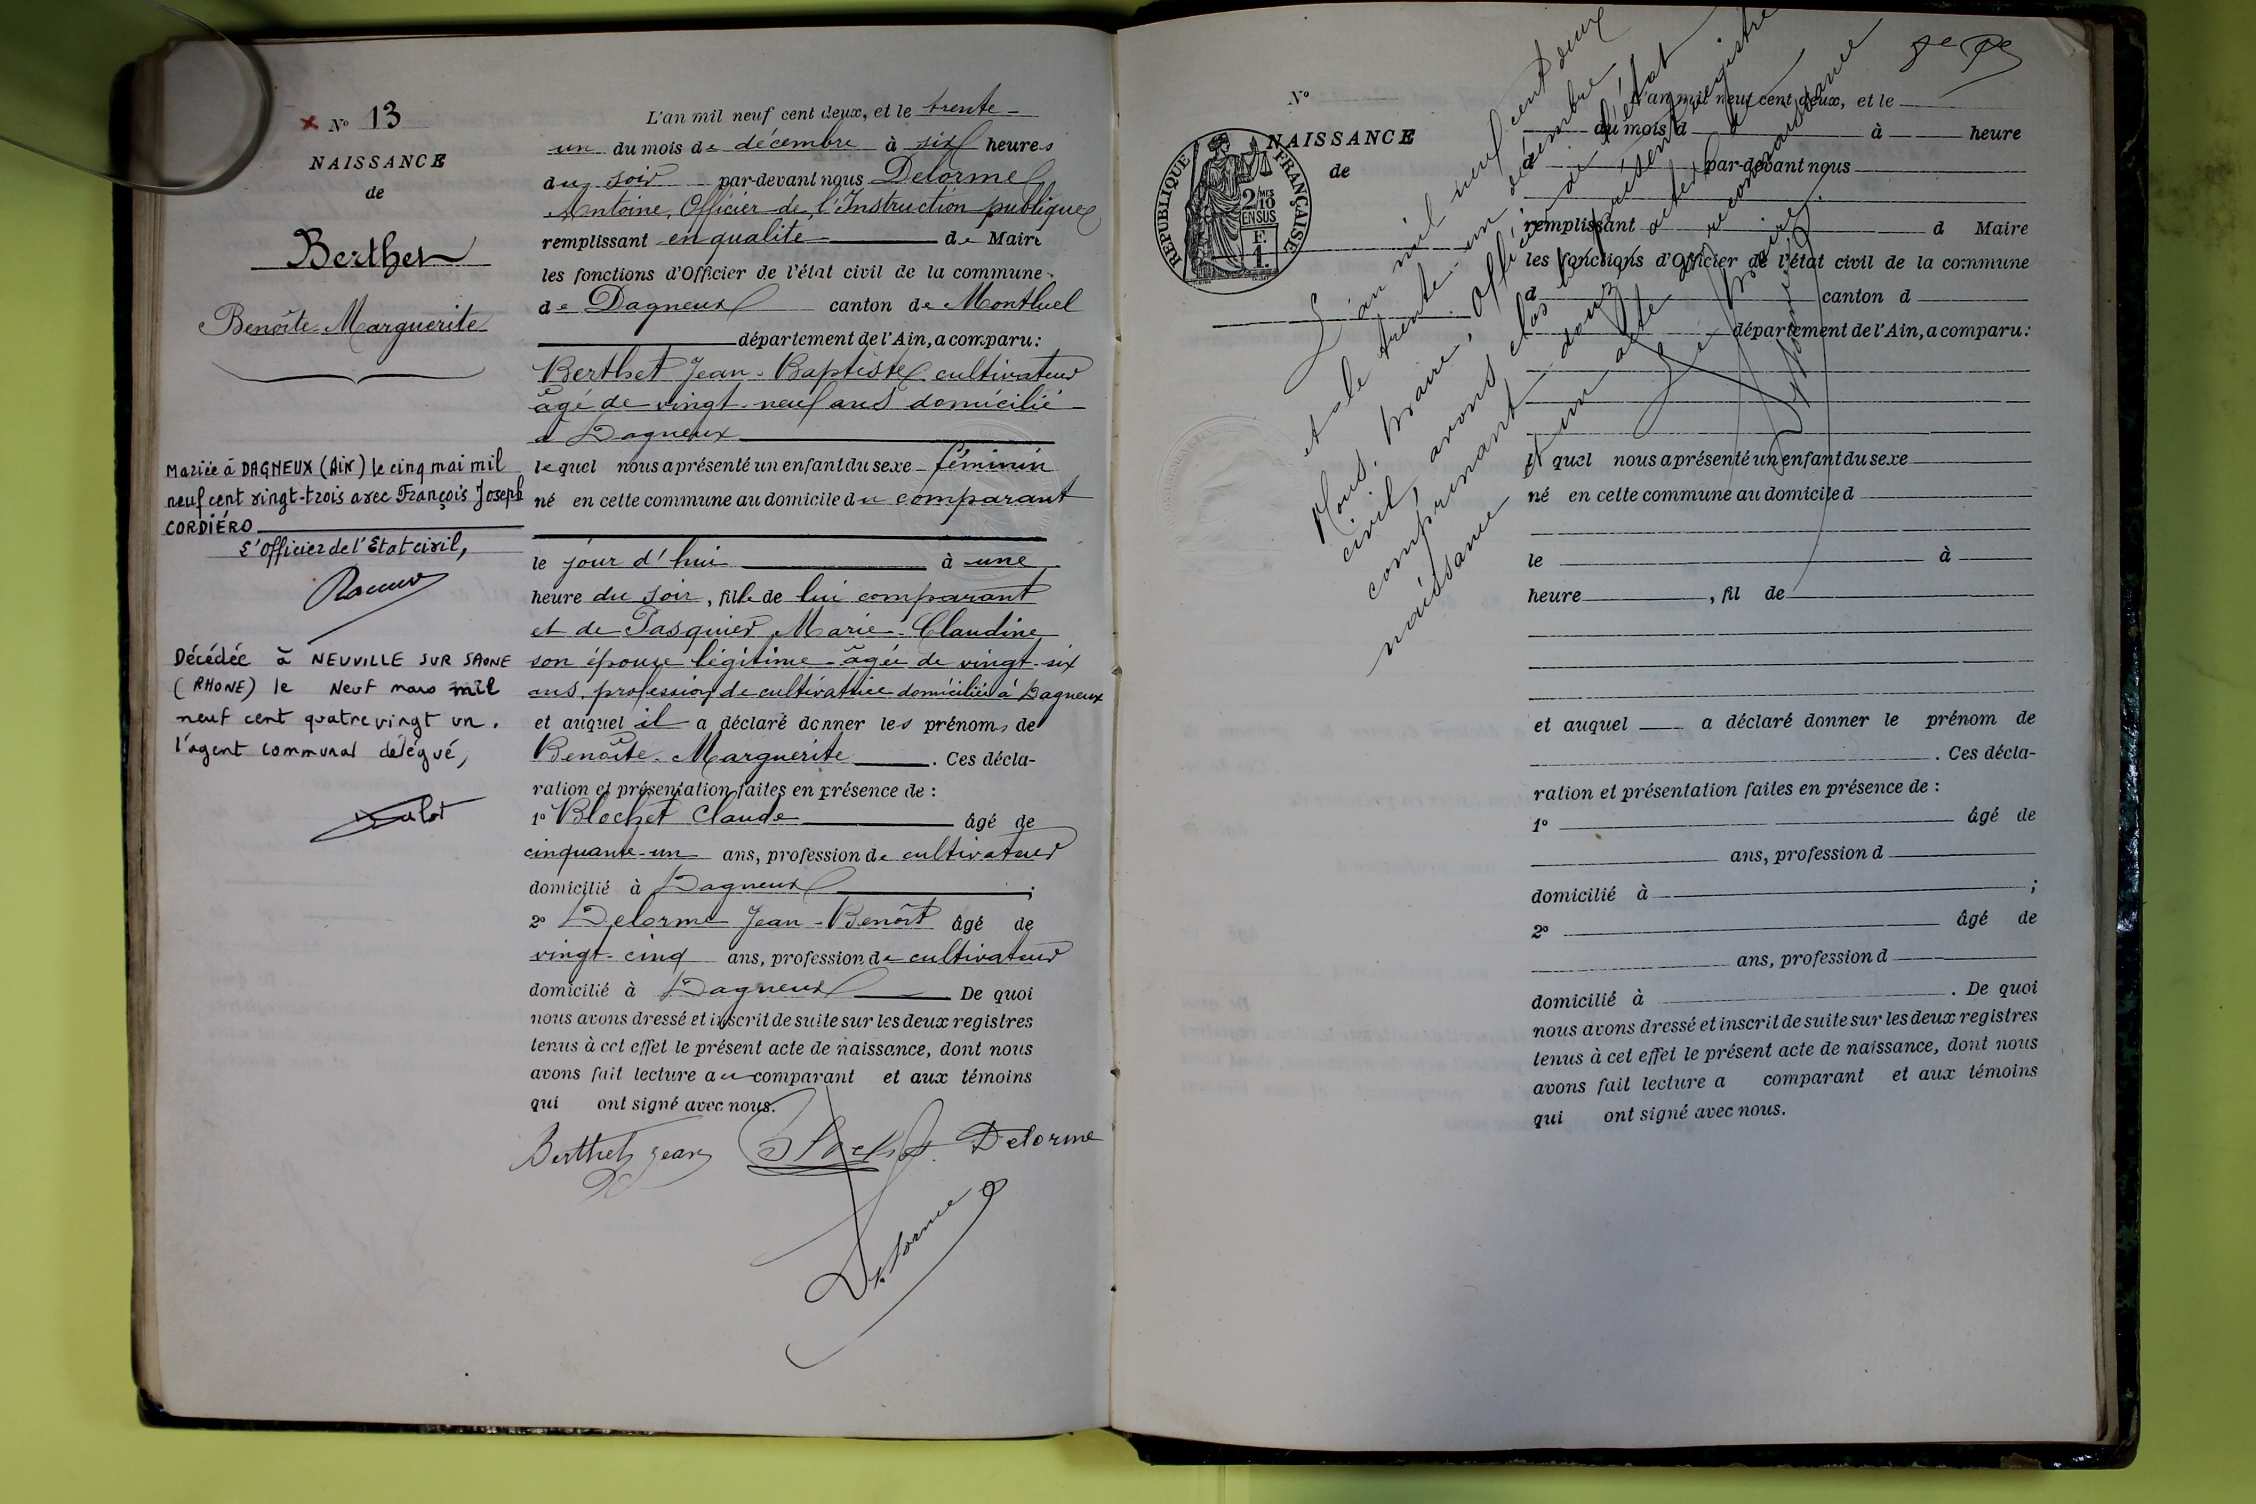 × Nº 13
NAISSANCE
de
Berthet
Benoîte-Marguerite
Mariée à DAGNEUX (Ain) le cinq mai mil
neuf cent vingt-trois avec François Joseph
CORDIÉRO
L'Officier de l'Etat civil,
Décédée à NEUVILLE SUR SAONE
(RHONE) le Neuf mars mil
neuf cent quatre vingt un.
l'agent communal délégué,
L'an mil neuf cent deux, et le trente-
un du mois de décembre à six heures
du soir par-devant nous Delorme
Antoine, Officier de l'Instruction publique
remplissant en qualité de Maire
les fonctions d'Officier de l'état civil de la commune
de Dagneux canton de Montluel
département de l'Ain, a comparu:
Berthet Jean-Baptiste cultivateur
âgé de vingt-neuf ans domicilié
à Dagneux
lequel nous a présenté un enfant du sexe féminin
né en cette commune au domicile du comparant
le jour d'hui à une
heure du soir, fille de lui comparant
et de Pasquier Marie-Claudine
son épouse légitime âgée de vingt-six
ans, profession de cultivatrice domiciliée à Dagneux
et auquel il a déclaré donner les prénoms de
Benoîte-Marguerite. Ces décla-
ration et présentation faites en présence de :
1º Blochet Claude âgé de
cinquante-un ans, profession de cultivateur
domicilié à Dagneux ;
2º Delorme Jean-Benoît âgé de
vingt-cinq ans, profession de cultivateur
domicilié à Dagneux De quoi
nous avons dressé et inscrit de suite sur les deux registres
tenus à cet effet le présent acte de naissance, dont nous
avons fait lecture au comparant et aux témoins
qui ont signé avec nous.
Berthet Jean Blochet Delorme
Delorme
Nº
NAISSANCE
de
RÉPUBLIQUE FRANÇAISE
2 MES
10
EN SUS
F.
1.
L'an mil neuf cent deux, et le
du mois d à heure
par-devant nous
remplissant d Maire
les fonctions d'Officier de l'état civil de la commune
d canton d
département de l'Ain, a comparu:
l quel nous a présenté un enfant du sexe
né en cette commune au domicile d
le à
heure , fil de
et auquel a déclaré donner le prénom de
. Ces décla-
ration et présentation faites en présence de :
1º âgé de
ans, profession d
domicilié à ;
2º âgé de
ans, profession d
domicilié à . De quoi
nous avons dressé et inscrit de suite sur les deux registres
tenus à cet effet le présent acte de naissance, dont nous
avons fait lecture a comparant et aux témoins
qui ont signé avec nous.
L'an mil neuf cent deux
et le trente-un décembre
Nous, Maire, Officier de l'état
civil, avons clos le présent registre
comprenant douze actes de
naissance et un acte de reconnaissance
Le Maire,
Delorme